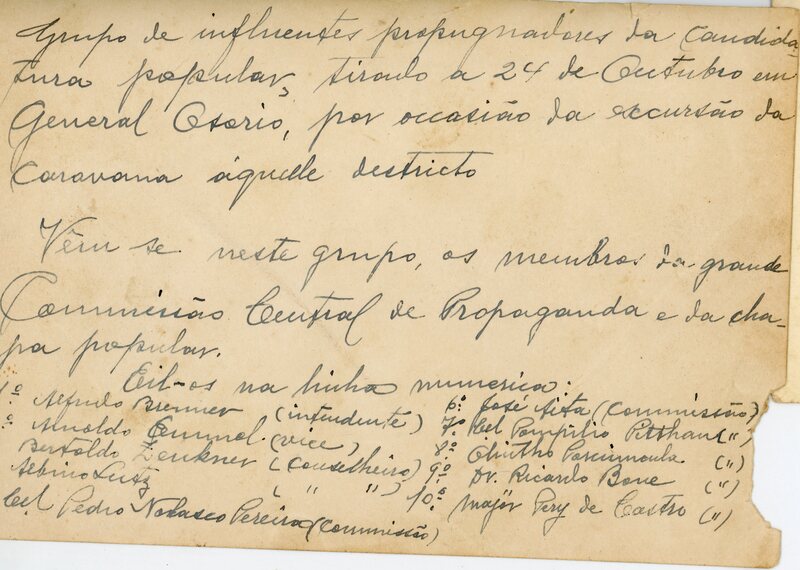 Grupo de influentes propugnadores da candida-
tura popular, tirado a 24 de Outubro em
General Osorio, por occasião da excursão da
caravana áquelle destricto
Vêm se neste grupo, os membros da grande
Commissão Central de Propaganda e da cha-
pa popular.
Eil-os na linha numerica:
1º Alfredo Brenner (intendente)
º Arnoldo (vice)
Bertoldo (Conselheiro)
Albino Lutz ( " " )
Cel. Pedro Nolasco Pereira (Commissão)
6º José Aita (Commissão)
7º Cel Pompilio Pitthan ( " )
8º ( " )
9º Dr. Ricardo Bone ( " )
10º major Pery de Castro ( " )